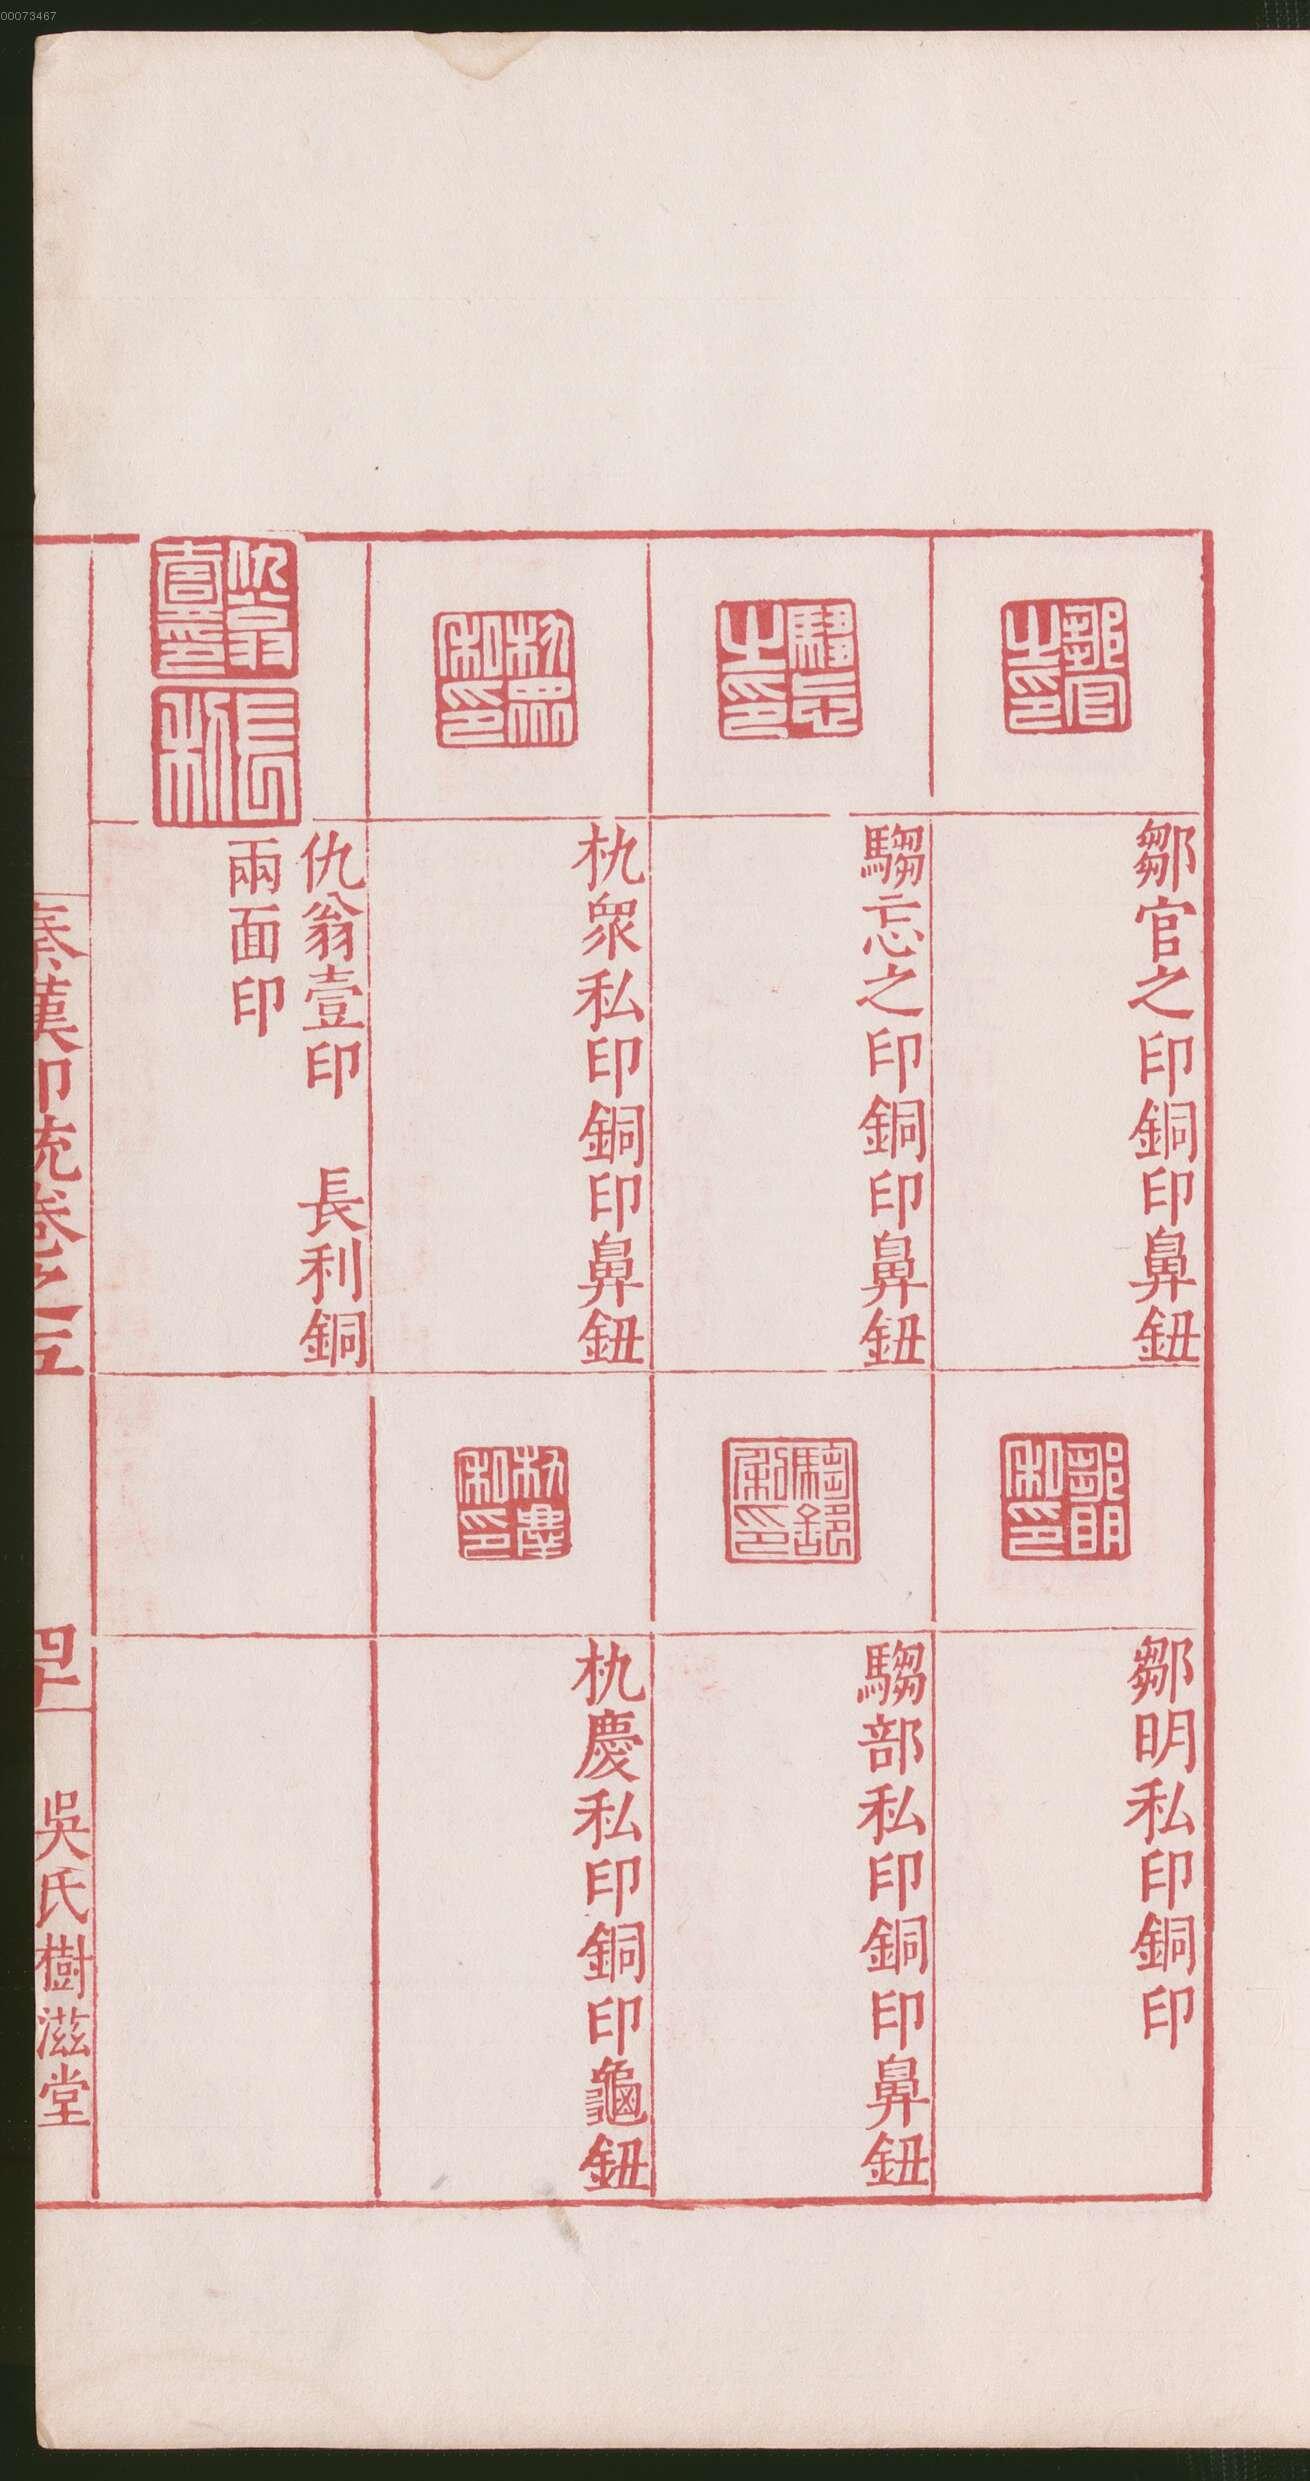 00073467
鄒官之印銅印鼻鈕
鄒明私印銅印
騶忘之印銅印鼻鈕
騶部私印銅印鼻鈕
杋衆私印銅印鼻鈕
杋慶私印銅印龜鈕
仇翁壹印　長利銅
兩面印
秦漢印統卷之五
四十
吳氏樹滋堂